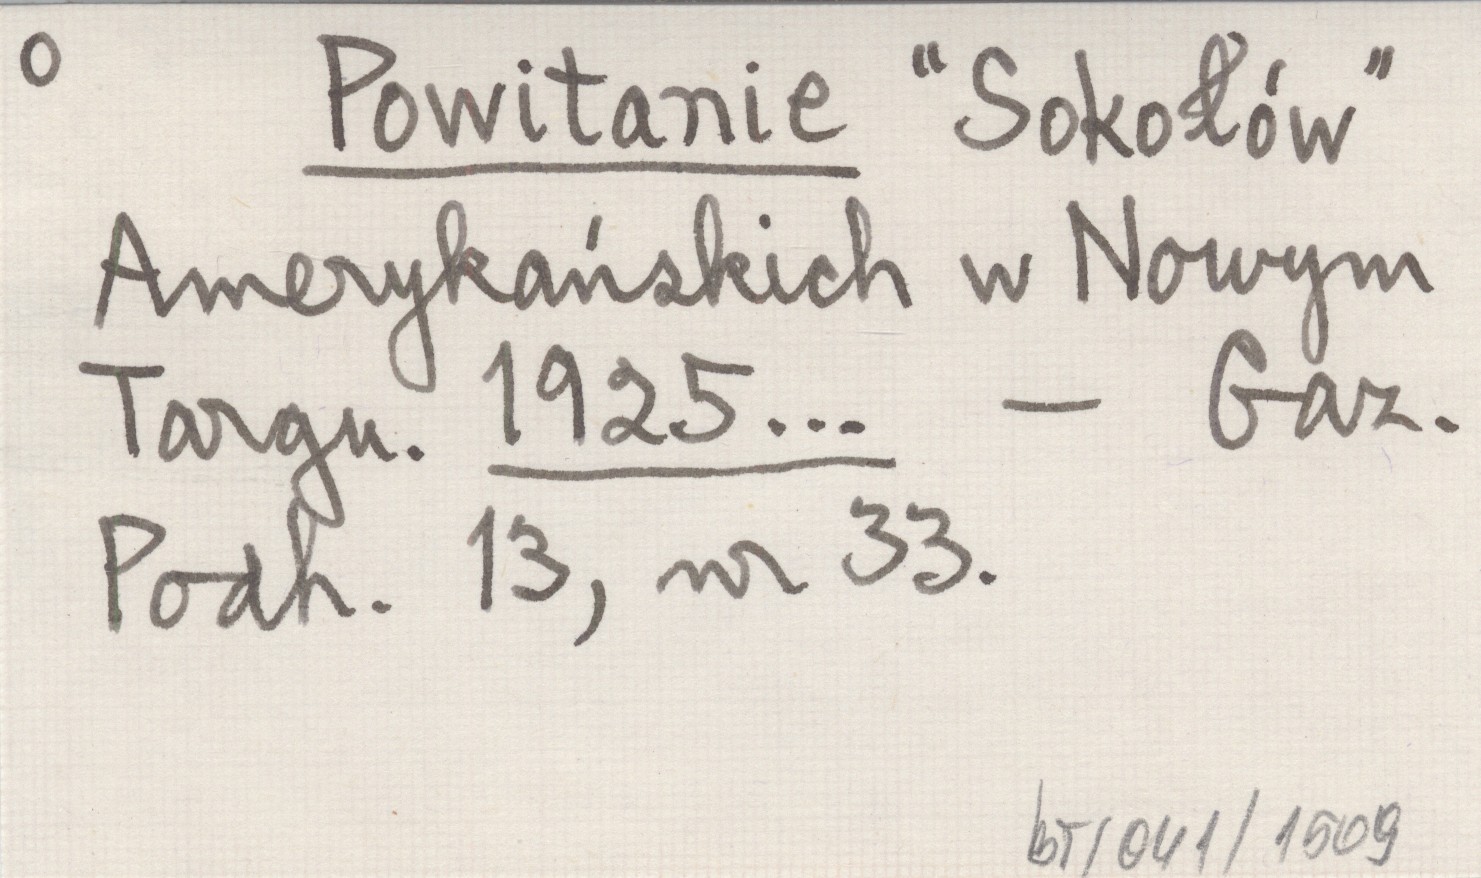 o Powitanie "Sokołów"
Amerykańskich w Nowym
Targu. 1925... — Gaz.
Podh. 13, nr 33.
bT/041/1509